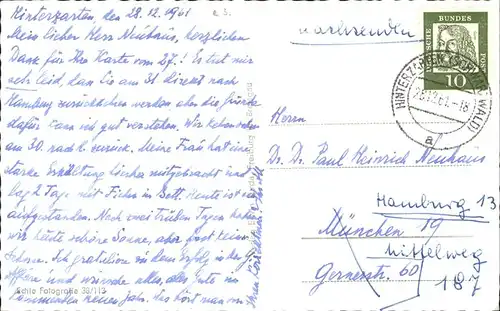 Hinterzarten, den 28.12.1961
Mein lieber Herr Neuhaus, herzlichen
Dank für Ihre Karte vom 27.! Es tut mir
sehr leid, dass Sie am 31. direkt nach
Hamburg zurückkehren werden aber die Gründe
dafür kann ich gut verstehen. Wir
am 30. nach zurück. Meine Frau hat
starke Erkältung hierher mitgebracht und
lag 2 Tage mit Fieber im Bett. Heute ist sie
aufgestanden. Nach zwei trüben Tagen haben
wir heute schöne Sonne, aber fast keinen
Schnee. Ich gratuliere zu dem Erfolg in der
und wünsche alles, alles Gute im
kommenden neuen Jahr.
Echte Fotografie
nachsenden
DEUTSCHE BUNDESPOST
10
HINTERZARTEN (SCHWARZWALD)
a
Herrn
Dr. Dr. Paul Heinrich Neuhaus
Hamburg 13
München 19
Mittelweg
Gernerstr. 60
187